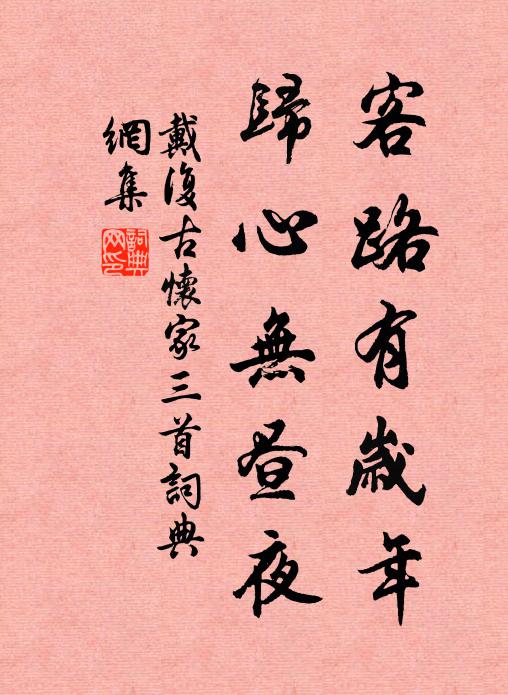 客路有歲年
歸心無昼夜
戴復古懷家三首詞典
網集
詞典
网印